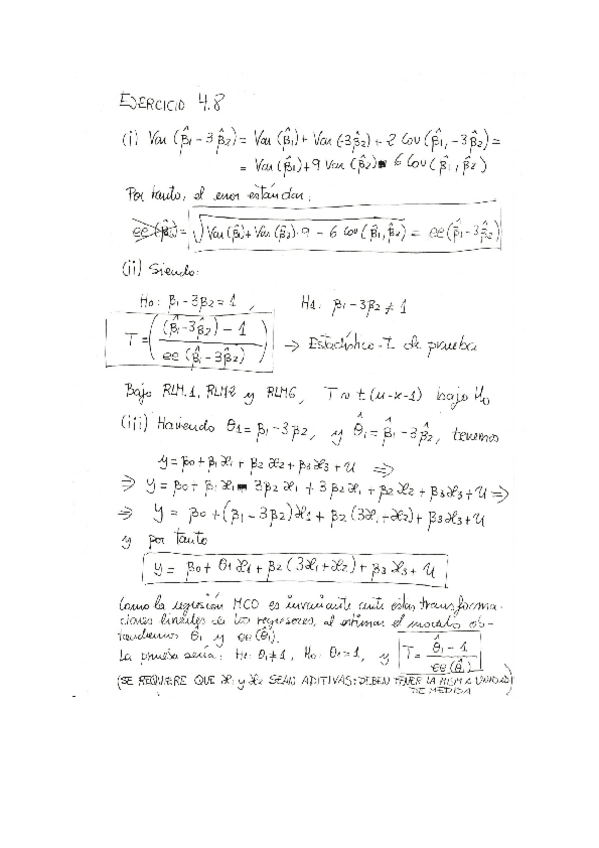 EJERCICIO 4.8
(i) Var (β̂1 - 3β̂2) = Var (β̂1) + Var (-3β̂2) + 2 Cov (β̂1, -3β̂2) =
= Var (β̂1) + 9 Var (β̂2) - 6 Cov (β̂1, β̂2)
Por tanto, el error estándar:
√Var (β̂1) + Var (β̂2)·9 - 6 Cov (β̂1, β̂2) = ee (β̂1 - 3β̂2)
(ii) Siendo:
H0: β1 - 3β2 = 1, H1: β1 - 3β2 ≠ 1
T = ((β̂1 - 3β̂2) - 1 / ee (β̂1 - 3β̂2)) → Estadístico-t de prueba
Bajo RLM.1, RLM2 y RLM6, T ~ t (n-k-1) bajo H0
(iii) Haciendo θ1 = β1 - 3β2, y θ̂1 = β̂1 - 3β̂2, tenemos
y = β0 + β1x1 + β2x2 + β3x3 + u ⇒
⇒ y = β0 + β1x1 - 3β2x1 + 3β2x1 + β2x2 + β3x3 + u ⇒
⇒ y = β0 + (β1 - 3β2)x1 + β2(3x1 + x2) + β3x3 + u
y por tanto
y = β0 + θ1x1 + β2(3x1 + x2) + β3x3 + u
Como la regresión MCO es invariante ante estas transforma-
ciones lineales de los regresores, al estimar el modelo ob-
tendremos θ̂1 y ee(θ̂1).
La prueba sería: H1: θ1 ≠ 1, H0: θ1 = 1, y T = θ̂1 - 1 / ee(θ̂)
(SE REQUIERE QUE x1 y x2 SEAN ADITIVAS: DEBEN TENER LA MISMA UNIDAD
DE MEDIDA